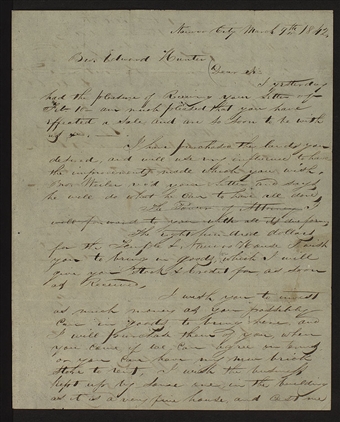 Nauvoo City March 9th 1842.
Bro. Edward Hunter,
Dear Sir. I yesterday
had the pleasure of Receiving your Letter of
Feb 10 am much pleased that you have
effected a Sale and are so soon to be with
us.
I have purchased the lands you
desired, and will use my influence to have
the improvements made which you wish,
Bro. Weiler read your letter and says
he will do what he can to have all done
The Power of Attorney I
will forward to you with all
The eight hundred dollars
for the Temple & Nauvoo House I wish
you to bring in goods, which I will
give you Stock & Credit for as soon
as Received.
I wish you to invest
as much money as you possibly
can in goods to bring here and
I will purchase them of you, when
you come, if we can agree on terms
or you can have my new brick
store to rent, I wish the business
kept up, by some one in the building
as it is a very fine house, and cost me